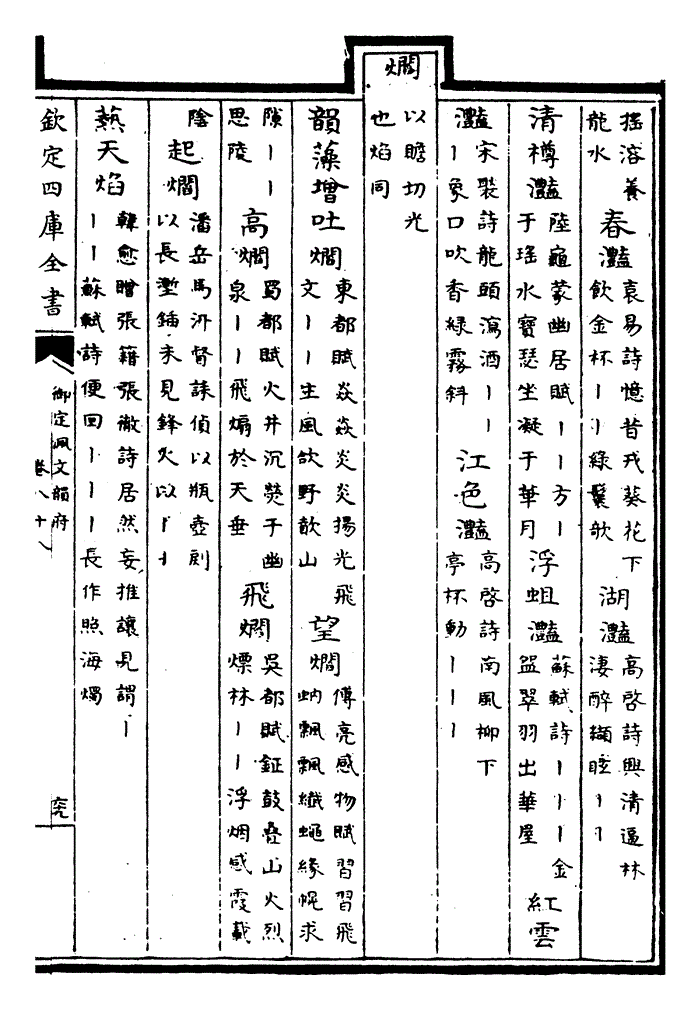 搖溶養
龍水
春灩
袁易詩憶昔戎葵花下
飲金杯丨丨綠鬟歌
湖灩
高啓詩興清逼林
淒醉纈眩丨丨
清樽灩
陸龜蒙幽居賦丨丨方丨
于瑶水寳瑟坐凝于華月
浮蛆灩
蘇軾詩丨丨丨金
盌翠羽出華屋
紅雲
灩
宋裴詩龍頭瀉酒丨丨
丨象口吹香緑霧斜
江色灩
高啓詩南風柳下
亭杯動丨丨丨
爓
以贍切光
也焰同
韻藻增
吐爓
東都賦焱焱炎炎揚光飛
文丨丨生風欱野歕山
望爓
傅亮感物賦習習飛
蚋飄飄纖蠅緣幌求
隙丨丨
思陵
高爓
蜀都賦火井沉熒于幽
泉丨丨飛煽於天垂
飛爓
吳都賦鉦鼓叠山火烈
熛林丨丨浮烟感霞載
陰
起爓
潘岳馬汧督誄偵以瓶壺剅
以長塹鍤未見鋒火以丨丨
熱天焰
韓愈贈張籍張徹詩居然妄推讓見謂丨
丨丨蘇軾詩便回丨丨丨長作照海燭
欽定四庫全書
御定佩文韻府
卷八十八